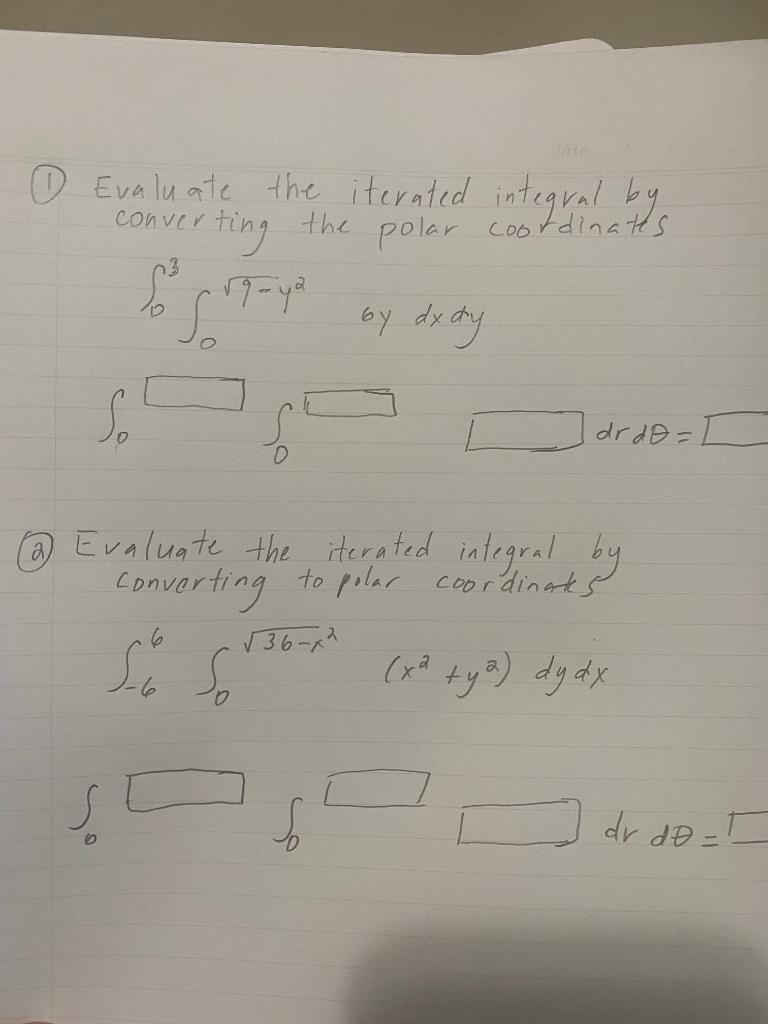 date / /
① Evaluate the iterated integral by
converting the polar coordinates
∫₀³ ∫₀^√(9-y²) 6y dx dy
∫₀^□ ∫₀^□ □ dr dθ = □
② Evaluate the iterated integral by
converting to polar coordinates
∫₋₆⁶ ∫₀^√(36-x²) (x² + y²) dy dx
∫₀^□ ∫₀^□ □ dr dθ = □